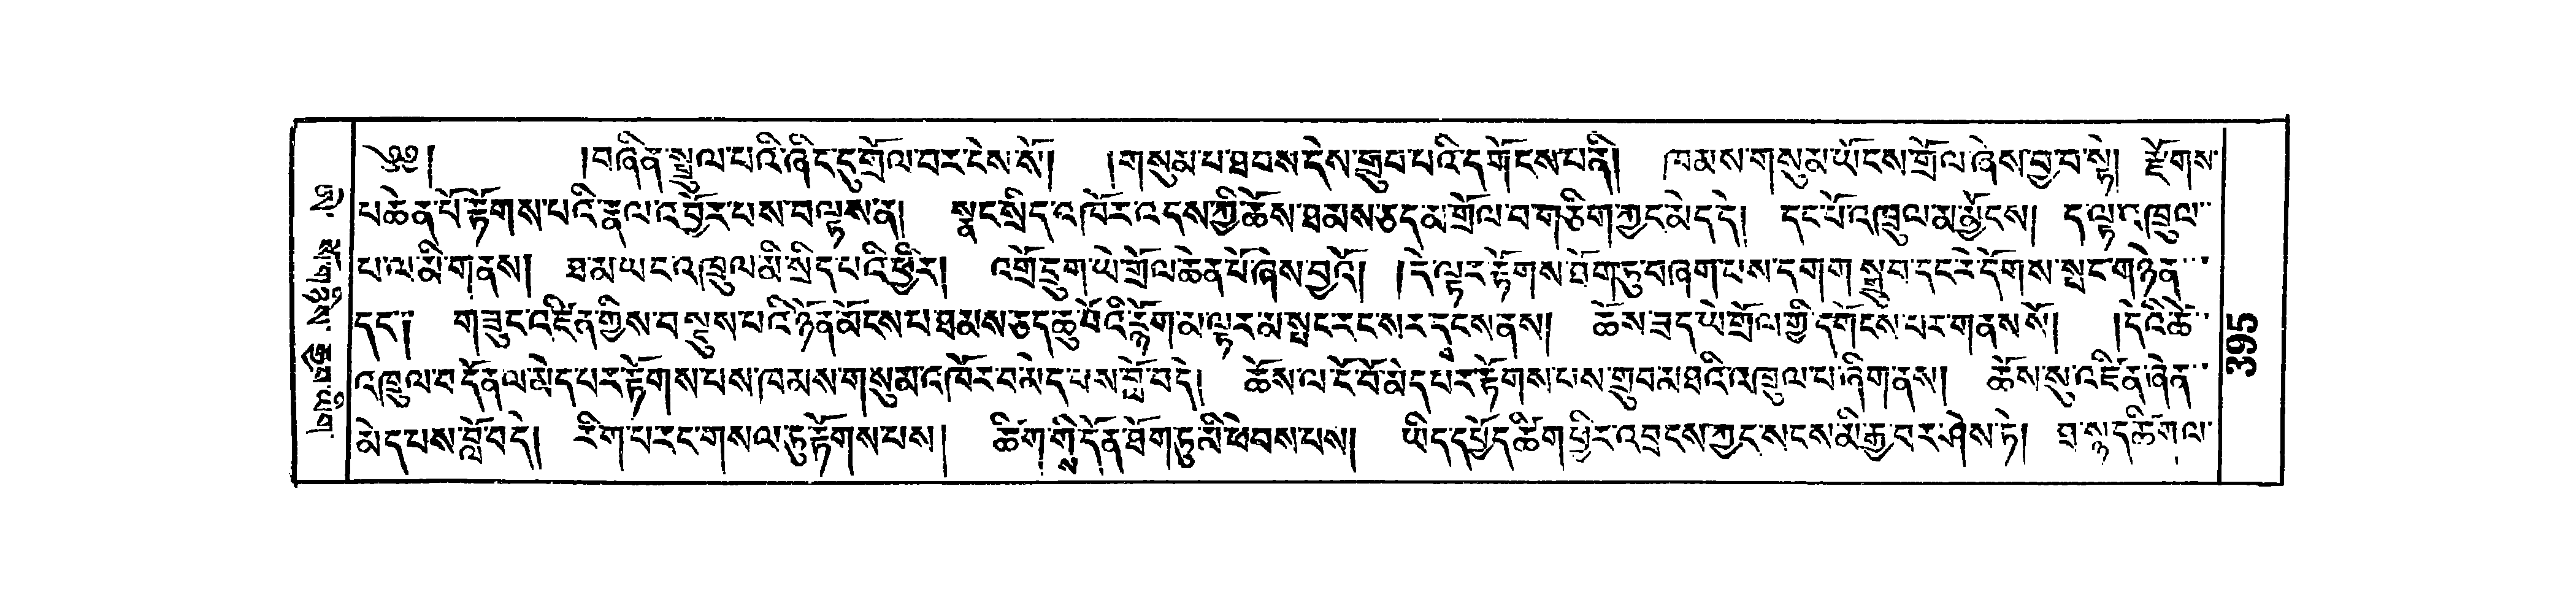 ༄༅། །བཞིན་སྤྲུལ་པའི་ཞིང་དུ་གྲོལ་བར་ངེས་སོ། །གསུམ་པ་ཐབས་དེས་གྲུབ་པའི་དགོངས་པ་ནི། ཁམས་གསུམ་ཡོངས་གྲོལ་ཞེས་བྱ་བ་སྟེ། རྫོགས་
པ་ཆེན་པོ་རྟོགས་པའི་རྣལ་འབྱོར་པས་བལྟས་ན། སྣང་སྲིད་འཁོར་འདས་ཀྱི་ཆོས་ཐམས་ཅད་མ་གྲོལ་བ་གཅིག་ཀྱང་མེད་དེ། དང་པོ་འཁྲུལ་མ་མྱོངས། ད་ལྟ་འཁྲུལ་
པ་ལ་མི་གནས། ཐ་མ་ཡང་འཁྲུལ་མི་སྲིད་པའི་ཕྱིར། འགྲོ་དྲུག་ཡེ་གྲོལ་ཆེན་པོ་ཞེས་བྱའོ། །དེ་ལྟར་རྟོགས་ཐོག་ཏུ་བཞག་པས་དགག་སྒྲུབ་དང་རེ་དོགས་སྤང་གཉེན་
དང་། གཟུང་འཛིན་གྱིས་བསྡུས་པའི་ཉོན་མོངས་པ་ཐམས་ཅད་ཆུ་བོའི་རྙོག་མ་ལྟར་མ་སྤང་རང་སར་དྭངས་ནས། ཆོས་ཟད་ཡེ་གྲོལ་གྱི་དགོངས་པར་གནས་སོ། །དེའི་ཚེ་
འཁྲུལ་བ་དོན་ལ་མེད་པར་རྟོགས་པས་ཁམས་གསུམ་འཁོར་བ་མེད་པས་བློ་བདེ། ཆོས་ལ་ངོ་བོ་མེད་པར་རྟོགས་པས་གྲུབ་མཐའི་འཁྲུལ་པ་ཞིག་ནས། ཆོས་སུ་འཛིན་ཞེན་
མེད་པས་བློ་བདེ། རིག་པ་རང་གསལ་དུ་རྟོགས་པས། ཚིག་གི་དོན་ཐོག་ཏུ་མི་ཕེབས་པས། ཡིད་དཔྱོད་ཚིག་ཕྱིར་འབྲངས་ཀྱང་སངས་མི་རྒྱ་བར་ཤེས་ཏེ། ཐ་སྙད་ཚིག་ལ་